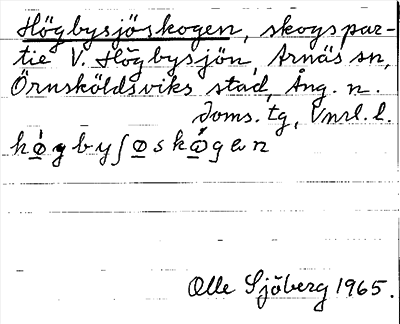 Högbysjöskogen, skogspar-
tie V. Högbysjön, Arnäs sn,
Örnsköldsviks stad, Ång. n.
Doms. tg, Vnrl. l.
hǿ̱gbyʃø̱skǿ̱gen
Olle Sjöberg 1965.